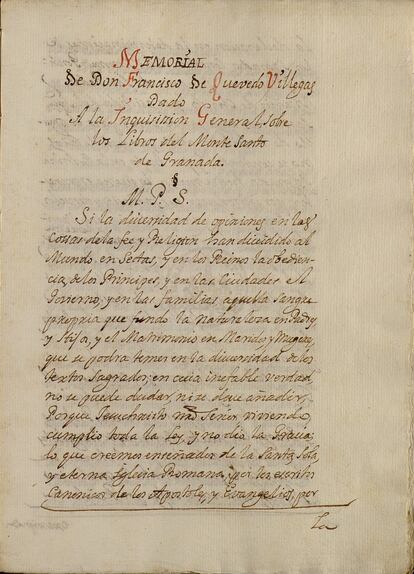 MEMORIAL
De Don Francisco De Quevedo Villegas
Dado
A la Inquisicion General, sobre
los Libros del Monte Santo
de Granada.
§
M. P. S.
Si la diversidad de opiniones en las
cosas de la fee y Religion han dividido al
Mundo en Sectas, y en los Reinos la obedien
cia, de los Principes, y en las Ciudades el
Govierno, y en las familias aquella sangre
propria que fundo la naturaleza en Padre,
y Hijo, y el Matrimonio en Marido, y Muger,
que se podra temer en la diversidad de los
textos Sagrados; en cuia inefable verdad,
no se puede dudar, ni se deve añadir,
Porque Jesuchristo nro Señor viviendo
cumplio toda la Ley, y nos dio la Gracia,
lo que creemos enseñados de la Santa, sola,
y eterna Iglesia Romana, por los escritos
Canonicos de los Apostoles, y Evangelios, por
La